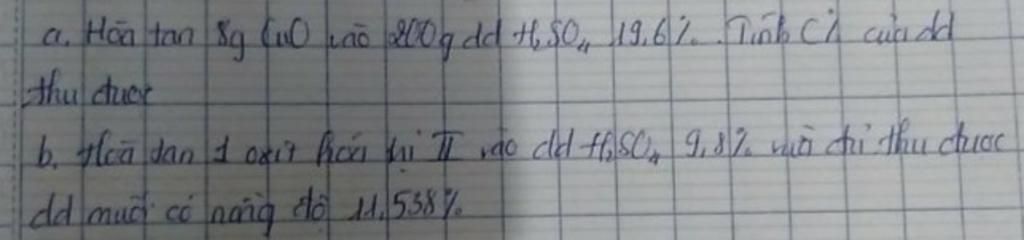 a. Hòa tan 8g CuO vào 200g dd H₂SO₄ 19,6%. Tính C% của dd
thu được
b. Hòa dan 1 oxit hóa trị II vào dd H₂SO₄ 9,8% vừa chỉ thu được
dd muối có nồng độ 11,538%